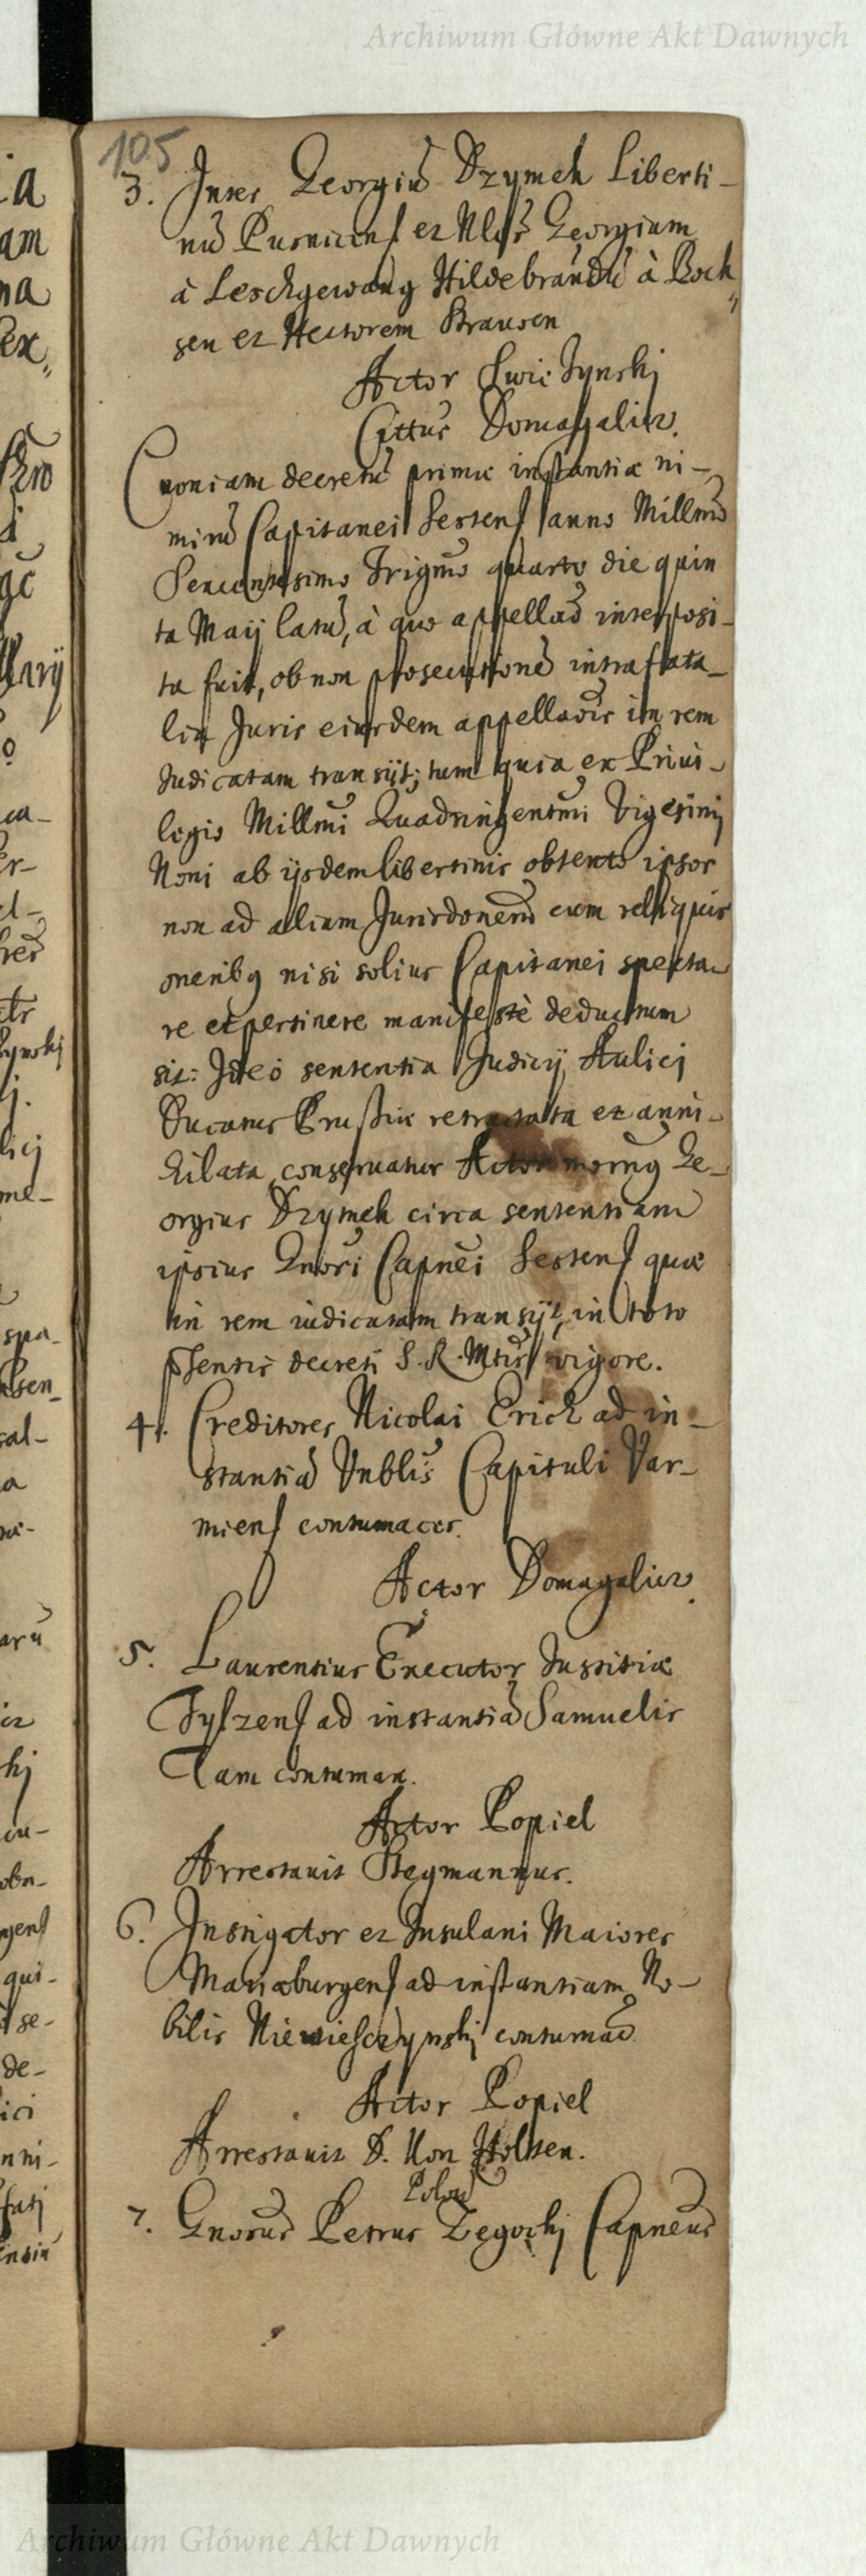 Archiwum Główne Akt Dawnych
105
3. Inter Georgiũ Dzymek Liberti-
nũ et Nłos Georgium
à Lesckgewang Hildebrandũ à Rock„
sen et Hectorem Brausen
Actor Swiezynskj
Cittus Domagalicz.
Quoniam decretũ primæ instantiæ ni-
mirũ Capitanei Sestens anno Millmõ
Sexcentesimo Trigmõ quarto die quin
ta Maij latũ, à quo appellaõ interposi-
ta fuit, ob non prosecutionẽ intra fata-
lia Juris eiusdem appellaõis in rem
Judicatam transijt; tum quia ex Priui-
legio Millmi Quadringentmi Vigesimj
Noni ab ijsdem libertinis obtento ipsos
non ad aliam Jurisdonem cum reliquis
oneribg nisi solius Capitanei specta-
re et pertinere manifestè deductum
sit: Ideò sententia Judicij Aulicj
Ducatus Prussiæ retractata et anni-
hilata conseruatur Ge-
orgius Dzymek circa sententiam
ipsius Gnosi Capnei Sestens quæ
in rem iudicatam transijt, in toto
pŝentis decreti S. R. Mtis vigore.
4. Creditores Nicolai Erich ad in-
stantiã Vnblis Capituli Var-
miens contumaces.
Actor Domagalicz.
5. Laurentius Executor Justitiæ
Tylzens ad instantiã Samuelis
Tam contumax.
Actor Popiel
Arrestauit Stegmannus.
6. Instigator et Insulani Maiores
Mariæburgens ad instantiam No-
bilis Niewiesczynskj contumac
Actor Popiel
Arrestauit D. Von Holten.
7. Gnosus Petrus Zegockj Capneus